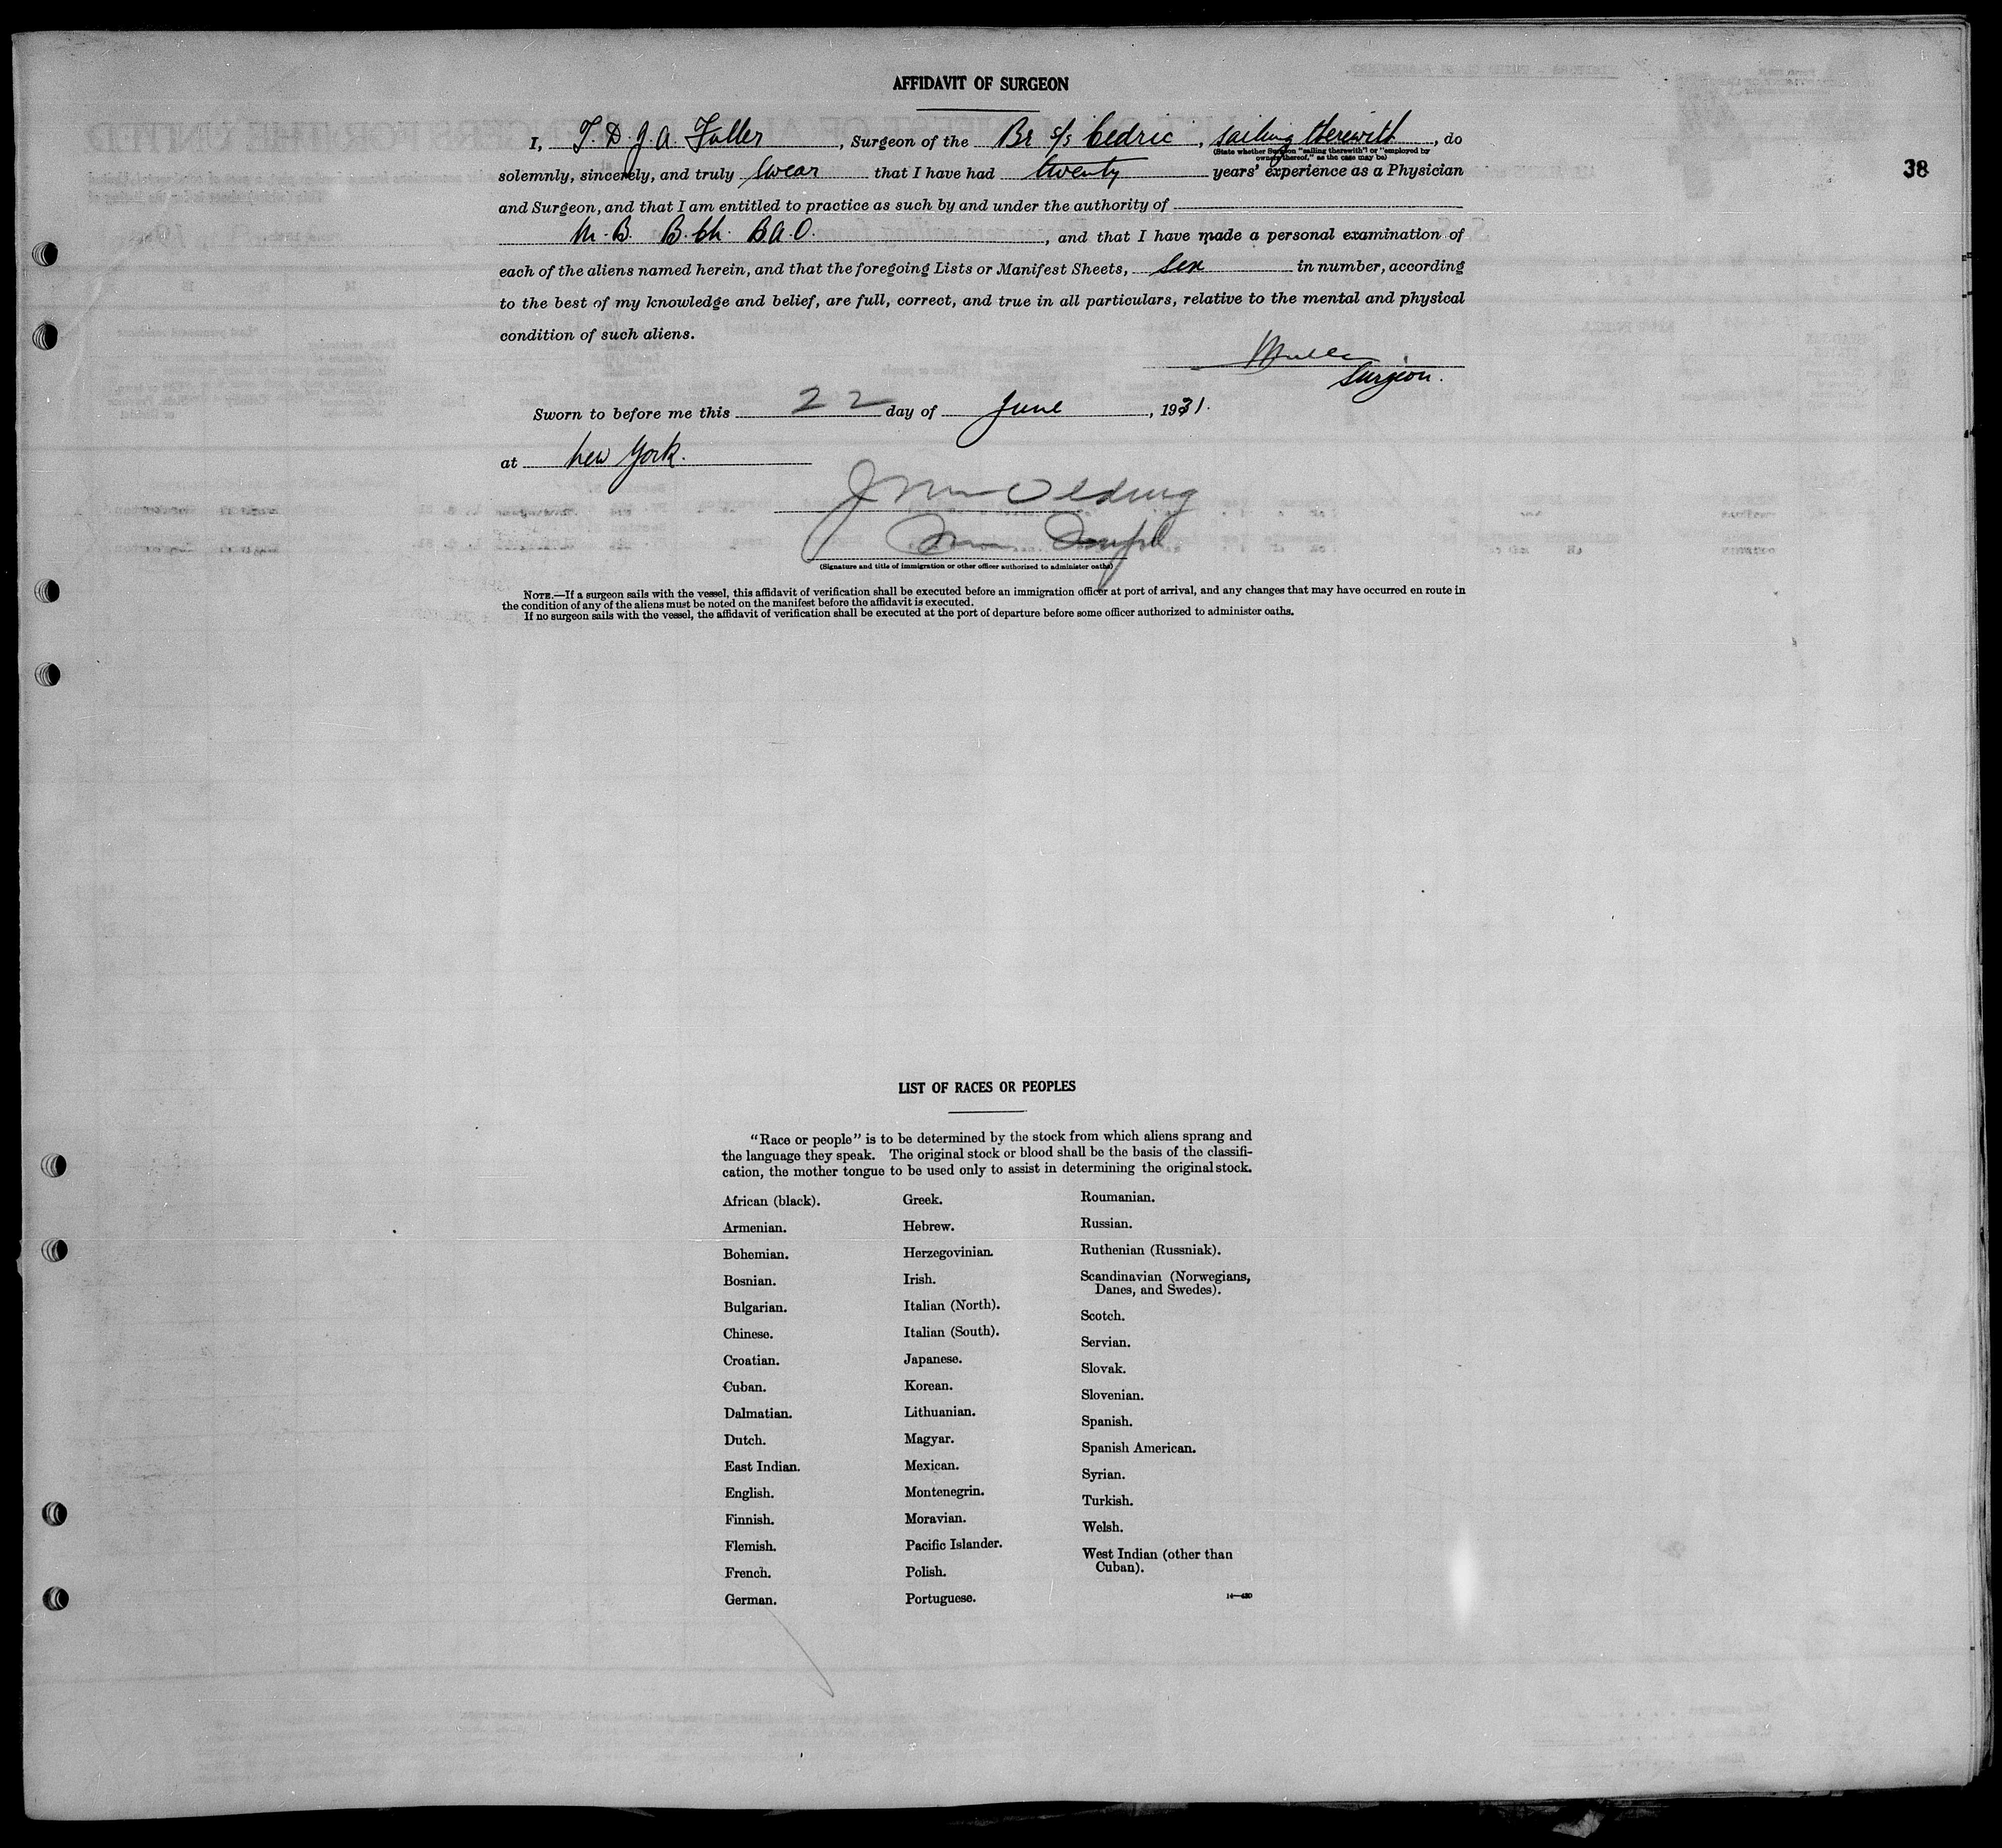 AFFIDAVIT OF SURGEON
I, T. D. J. A. Fuller, Surgeon of the Br s/s Cedric, sailing therewith, do
(State whether Surgeon "sailing therewith" or "employed by
owners thereof," as the case may be)
38
solemnly, sincerely, and truly swear that I have had twenty years' experience as a Physician
and Surgeon, and that I am entitled to practice as such by and under the authority of
M.B. B.Ch. B.A.O., and that I have made a personal examination of
each of the aliens named herein, and that the foregoing Lists or Manifest Sheets, six in number, according
to the best of my knowledge and belief, are full, correct, and true in all particulars, relative to the mental and physical
condition of such aliens.
Surgeon.
Sworn to before me this 22 day of June, 1931.
at New York.
(Signature and title of immigration or other officer authorized to administer oaths)
NOTE.—If a surgeon sails with the vessel, this affidavit of verification shall be executed before an immigration officer at port of arrival, and any changes that may have occurred en route in
the condition of any of the aliens must be noted on the manifest before the affidavit is executed.
If no surgeon sails with the vessel, the affidavit of verification shall be executed at the port of departure before some officer authorized to administer oaths.
LIST OF RACES OR PEOPLES
"Race or people" is to be determined by the stock from which aliens sprang and
the language they speak. The original stock or blood shall be the basis of the classifi-
cation, the mother tongue to be used only to assist in determining the original stock.
African (black).
Armenian.
Bohemian.
Bosnian.
Bulgarian.
Chinese.
Croatian.
Cuban.
Dalmatian.
Dutch.
East Indian.
English.
Finnish.
Flemish.
French.
German.
Greek.
Hebrew.
Herzegovinian.
Irish.
Italian (North).
Italian (South).
Japanese.
Korean.
Lithuanian.
Magyar.
Mexican.
Montenegrin.
Moravian.
Pacific Islander.
Polish.
Portuguese.
Roumanian.
Russian.
Ruthenian (Russniak).
Scandinavian (Norwegians,
Danes, and Swedes).
Scotch.
Servian.
Slovak.
Slovenian.
Spanish.
Spanish American.
Syrian.
Turkish.
Welsh.
West Indian (other than
Cuban).
14—430